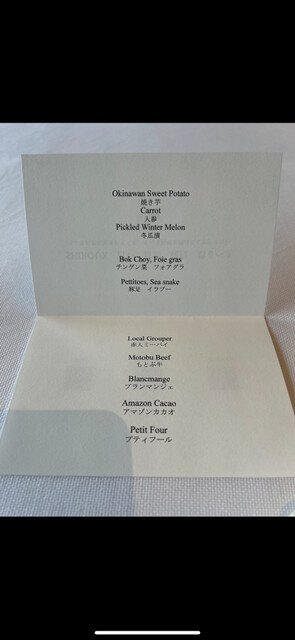 Okinawan Sweet Potato
焼き芋
Carrot
人参
Pickled Winter Melon
冬瓜漬
Bok Choy, Foie gras
チンゲン菜 フォアグラ
Pettitoes, Sea snake
豚足 イラブー
Local Grouper
赤人ミーバイ
Motobu Beef
もとぶ牛
Blancmange
ブランマンジェ
Amazon Cacao
アマゾンカカオ
Petit Four
プティフール